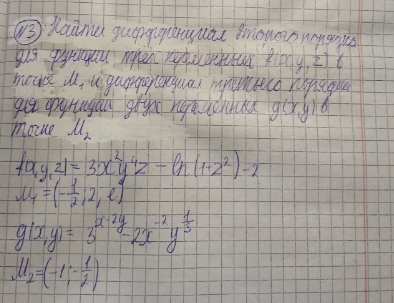 №3) Найти дифференциал второго порядка
для функции трёх переменных f(x,y,z) в
точке M₁ и дифференциал третьего порядка
для функции двух переменных g(x,y) в
точке M₂
f(x,y,z) = 3x²y⁴z - ln(1+z²) - 2
M₁ = (-1/2; 2, e)
g(x,y) = 3^(x-2y) - 2x^(-2) y^(1/3)
M₂ = (-1; -1/2)